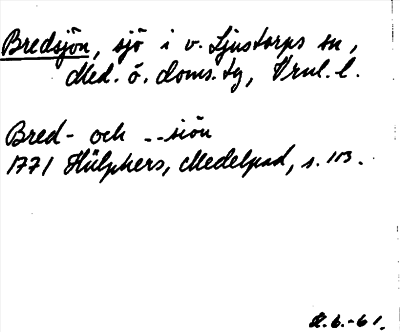 Bredsjön, sjö i v. Ljustorps sn,
Med. ö. doms. tg, Vrnl. l.
Bred- och ..siön
1771 Hülphers, Medelpad, s. 113.
2.6.-61.